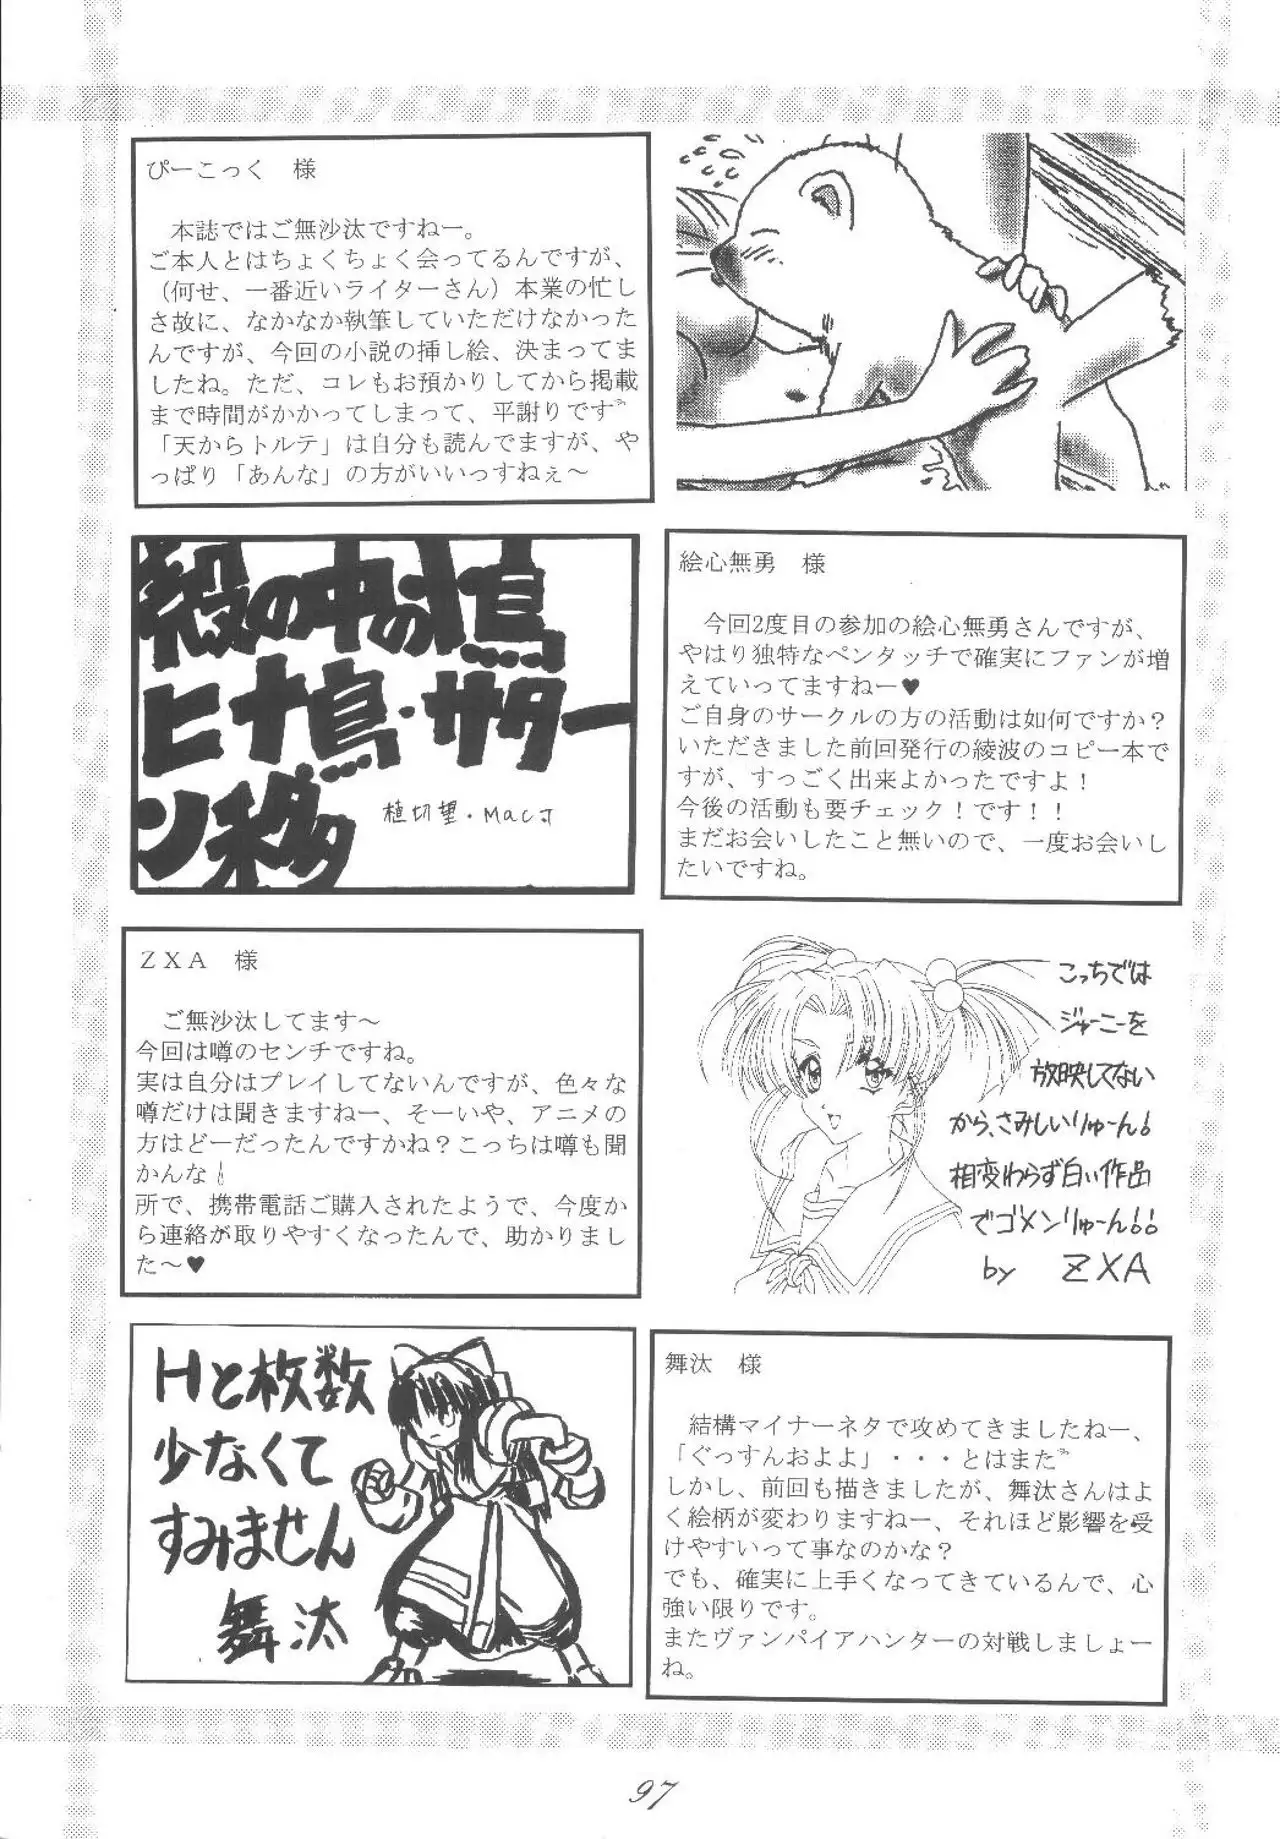 ぴーこっく　様
　本誌ではご無沙汰ですねー。
ご本人とはちょくちょく会ってるんですが、
（何せ、一番近いライターさん）本業の忙し
さ故に、なかなか執筆していただけなかった
んですが、今回の小説の挿し絵、決まってま
したね。ただ、コレもお預かりしてから掲載
まで時間がかかってしまって、平謝りです
「天からトルテ」は自分も読んでますが、や
っぱり「あんな」の方がいいっすねぇ～
殻の中の
ヒナ鳥・サター
ン移
植切望・Macす
絵心無勇　様
　今回2度目の参加の絵心無勇さんですが、
やはり独特なペンタッチで確実にファンが増
えていってますねー♥
ご自身のサークルの方の活動は如何ですか？
いただきました前回発行の綾波のコピー本で
すが、すっごく出来よかったですよ！
今後の活動も要チェック！です！！
まだお会いしたこと無いので、一度お会いし
たいですね。
ＺＸＡ　様
　ご無沙汰してます～
今回は噂のセンチですね。
実は自分はプレイしてないんですが、色々な
噂だけは聞きますねー、そーいや、アニメの
方はどーだったんですかね？こっちは噂も聞
かんな！
所で、携帯電話ご購入されたようで、今度か
ら連絡が取りやすくなったんで、助かりまし
た～♥
こっちでは
ジャーニーを
放映してない
から、さみしいりゅーん！
相変わらず白い作品
でゴメンりゅーん！！
by ZXA
Hと枚数
少なくて
すみません
舞汰
舞汰　様
　結構マイナーネタで攻めてきましたねー、
「ぐっすんおよよ」・・・とはまた
しかし、前回も描きましたが、舞汰さんはよ
く絵柄が変わりますねー、それほど影響を受
けやすいって事なのかな？
でも、確実に上手くなってきているんで、心
強い限りです。
またヴァンパイアハンターの対戦しましょー
ね。
97